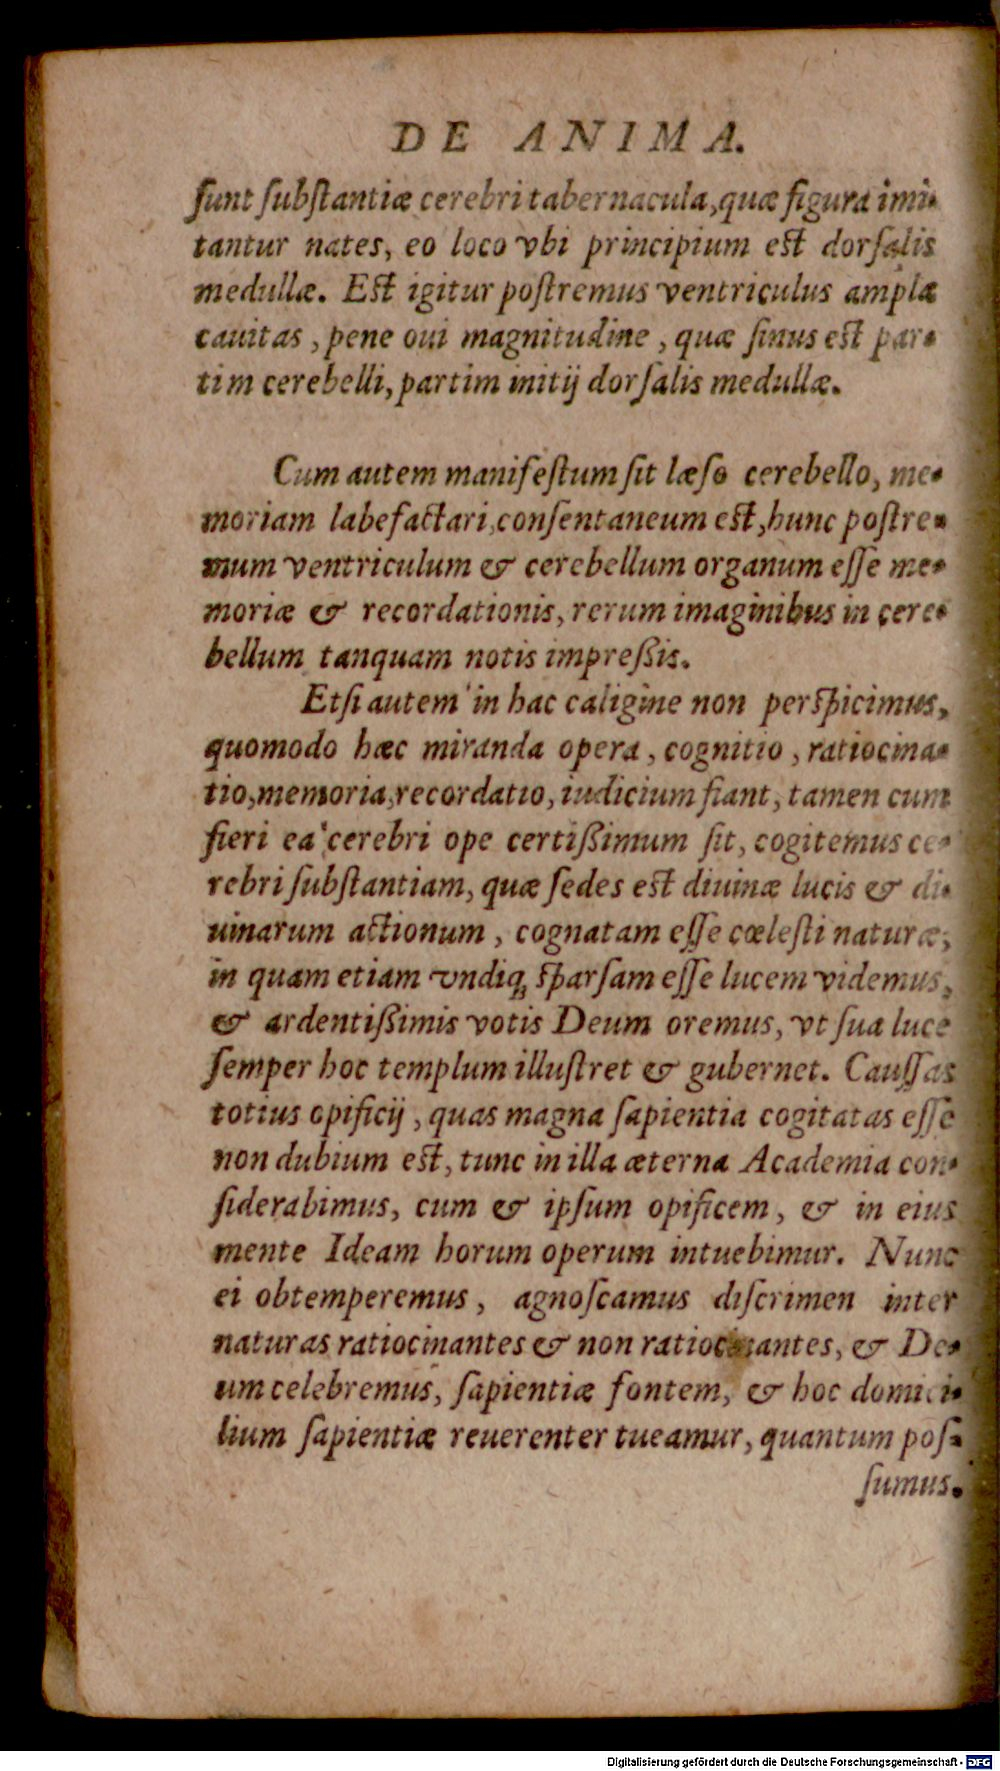 DE ANIMA.
ſunt ſubſtantiæ cerebri tabernacula, quæ figura imi-
tantur nates, eo loco vbi principium eſt dorſalis
medullæ. Eſt igitur poſtremus ventriculus ampla
cauitas, pene oui magnitudine, quæ ſinus eſt par-
tim cerebelli, partim initij dorſalis medullæ.
Cum autem manifeſtum ſit læſo cerebello, me-
moriam labefactari, conſentaneum eſt, hunc poſtre-
mum ventriculum & cerebellum organum eſſe me-
moriæ & recordationis, rerum imaginibus in cere-
bellum tanquam notis impreßis.
Etſi autem in hac caligine non perſpicimus,
quomodo hæc miranda opera, cognitio, ratiocina-
tio, memoria, recordatio, iudicium fiant, tamen cum
fieri ea cerebri ope certißimum ſit, cogitemus ce-
rebri ſubſtantiam, quæ ſedes eſt diuinæ lucis & di-
uinarum actionum, cognatam eſſe cœleſti naturæ,
in quam etiam vndiq; ſparſam eſſe lucem videmus,
& ardentißimis votis Deum oremus, vt ſua luce
ſemper hoc templum illuſtret & gubernet. Cauſſas
totius opificij, quas magna ſapientia cogitatas eſſe
non dubium eſt, tunc in illa æterna Academia con-
ſiderabimus, cum & ipſum opificem, & in eius
mente Ideam horum operum intuebimur. Nunc
ei obtemperemus, agnoſcamus diſcrimen inter
naturas ratiocinantes & non ratiocinantes, & De-
um celebremus, ſapientiæ fontem, & hoc domici-
lium ſapientiæ reuerenter tueamur, quantum poſ-
ſumus.
Digitalisierung gefördert durch die Deutsche Forschungsgemeinschaft - DFG